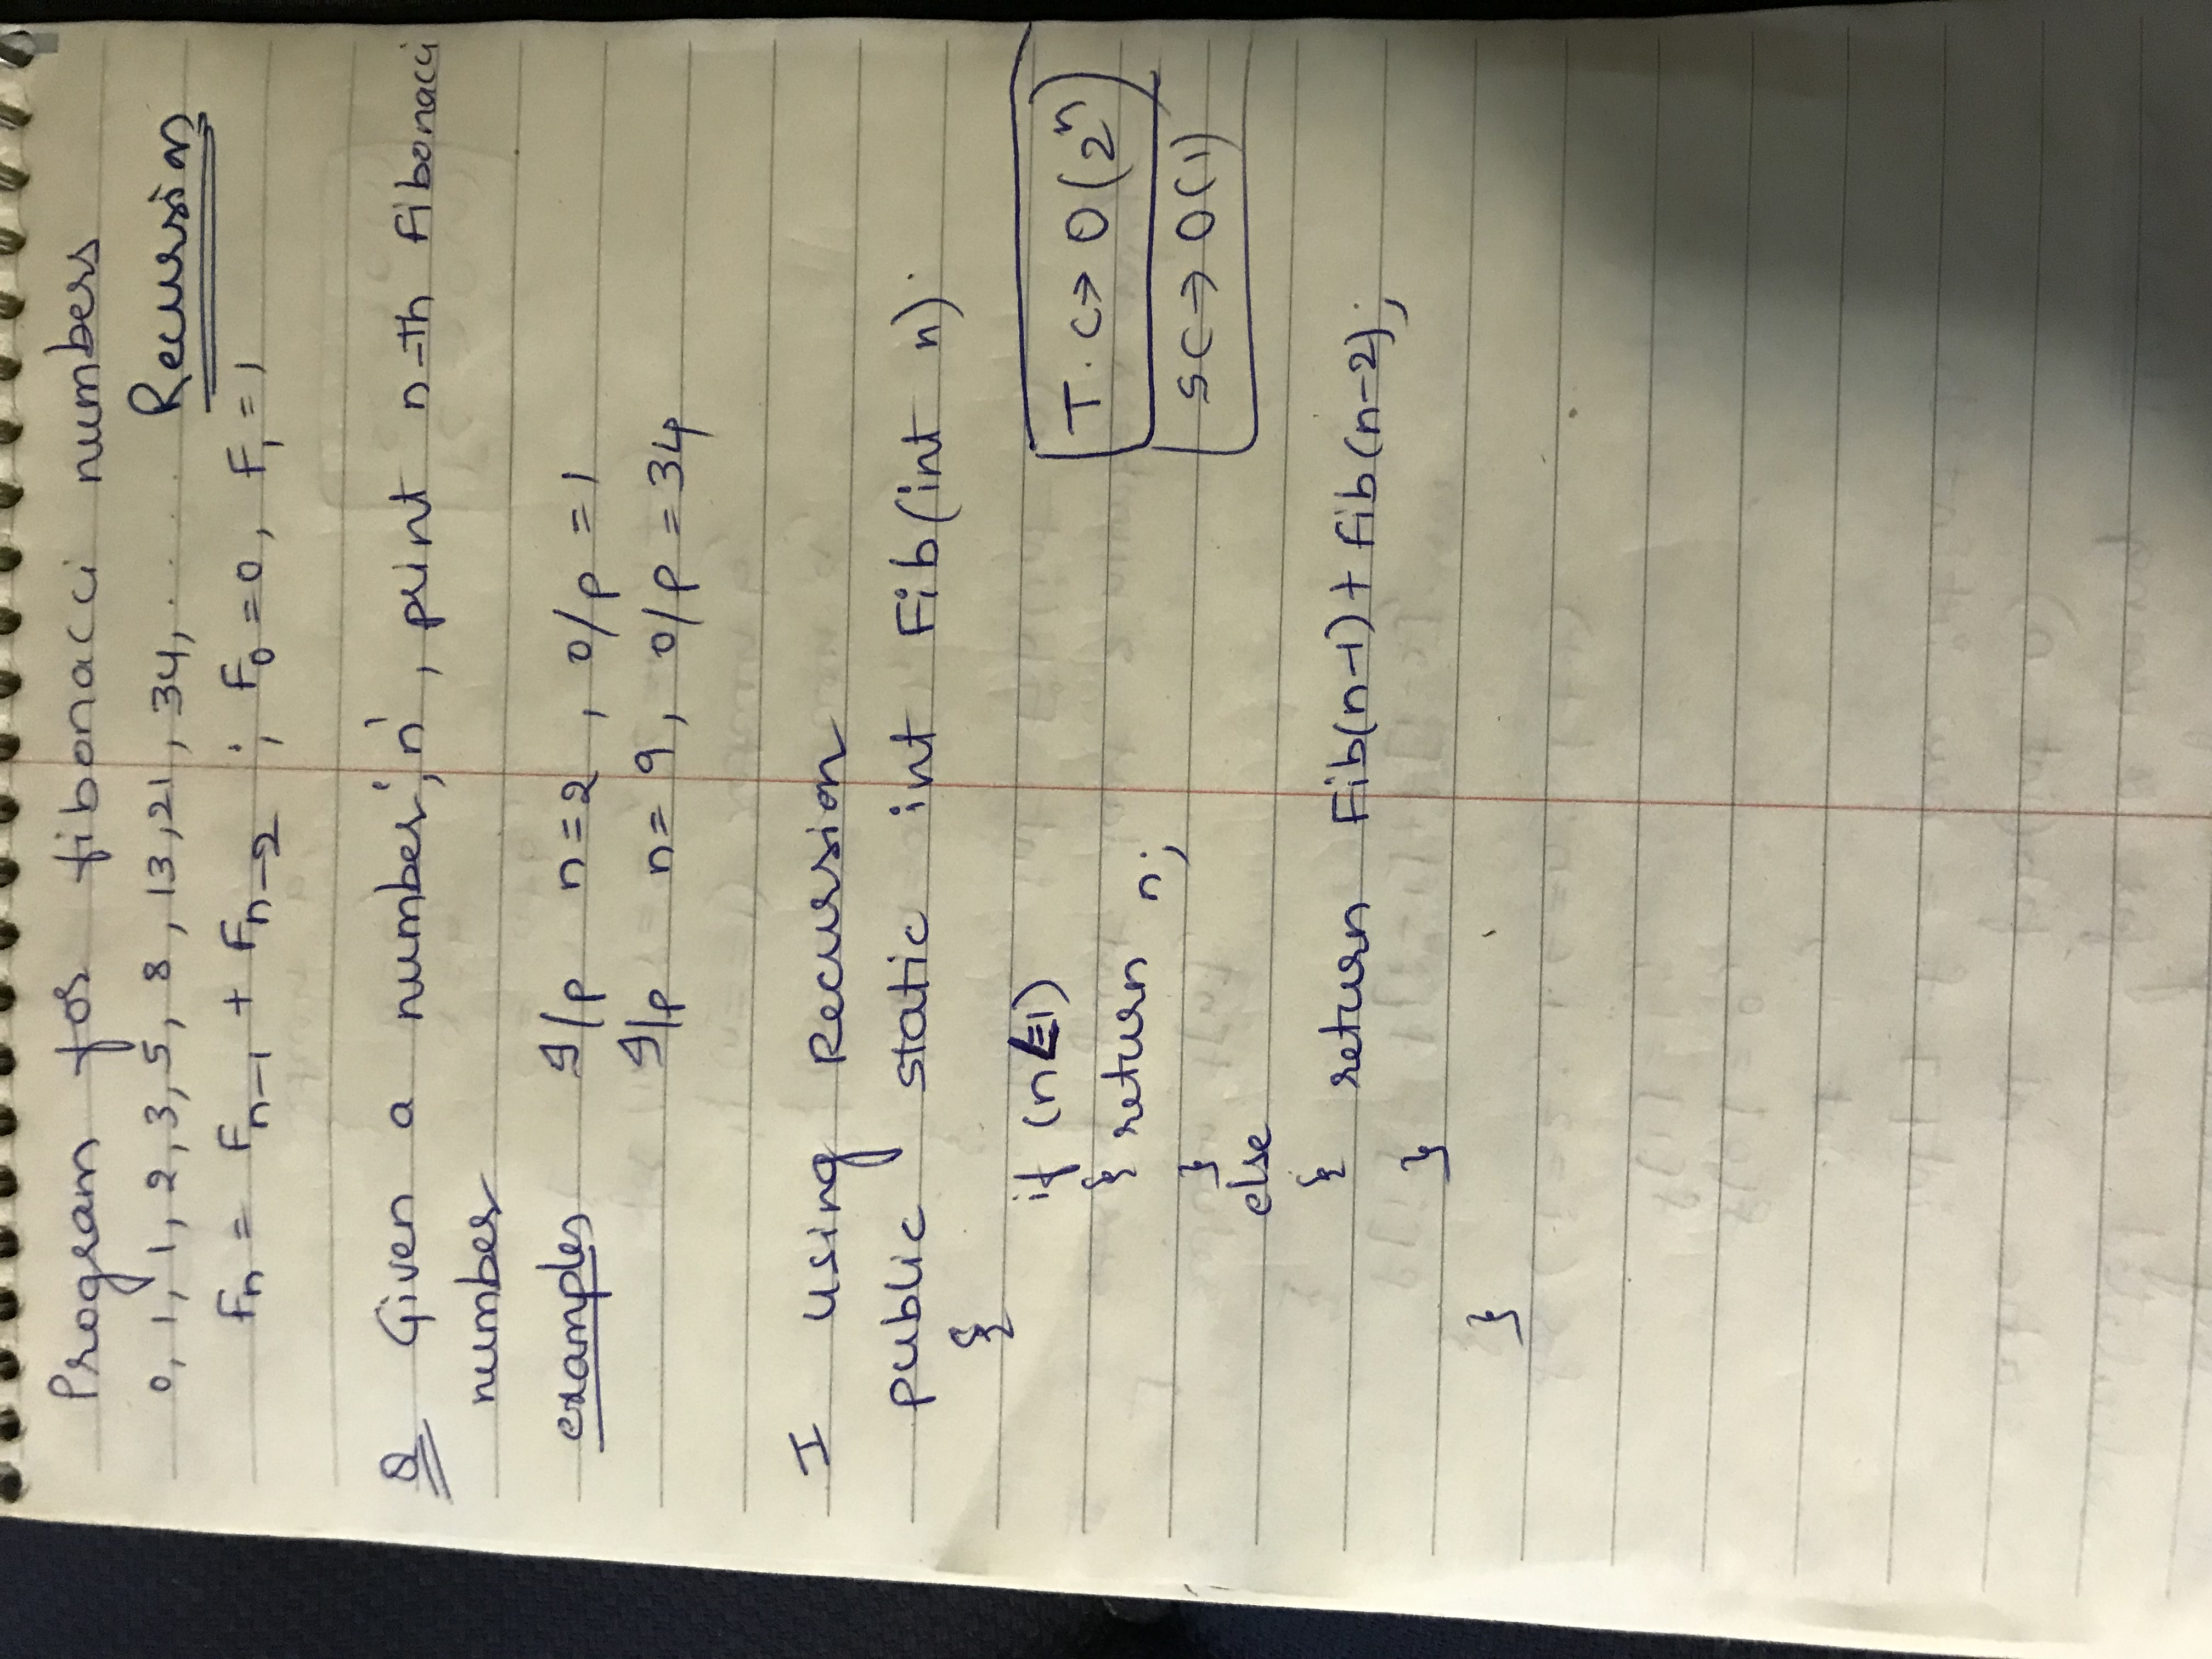 Program for fibonacci numbers
0, 1, 1, 2, 3, 5, 8, 13, 21, 34, ..... Recursion
Fn = Fn-1 + Fn-2 ; F0 = 0, F1 = 1
Q Given a number, 'n', print n-th Fibonacci
number
examples I/p n=2, o/p = 1
I/p n= 9, o/p = 34
I Using Recursion
public static int Fib(int n)
{
if (n<=1)
{ return n;
}
else
{ return Fib(n-1) + fib(n-2);
}
}
T.C → O(2^n)
SC → O(1)